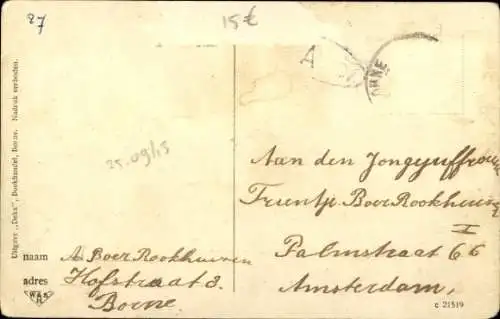 27
15€
ORNE
Uitgave „Deka", Boekhandel, Borne. Nadruk verboden.
25.09/15
Aan den Jongejuffrouw
Truentje Boer Rookhuizen
I
Palmstraat 66
Amsterdam,
naam A Boer Rookhuizen
adres Hofstraat 8.
Borne
c 21519